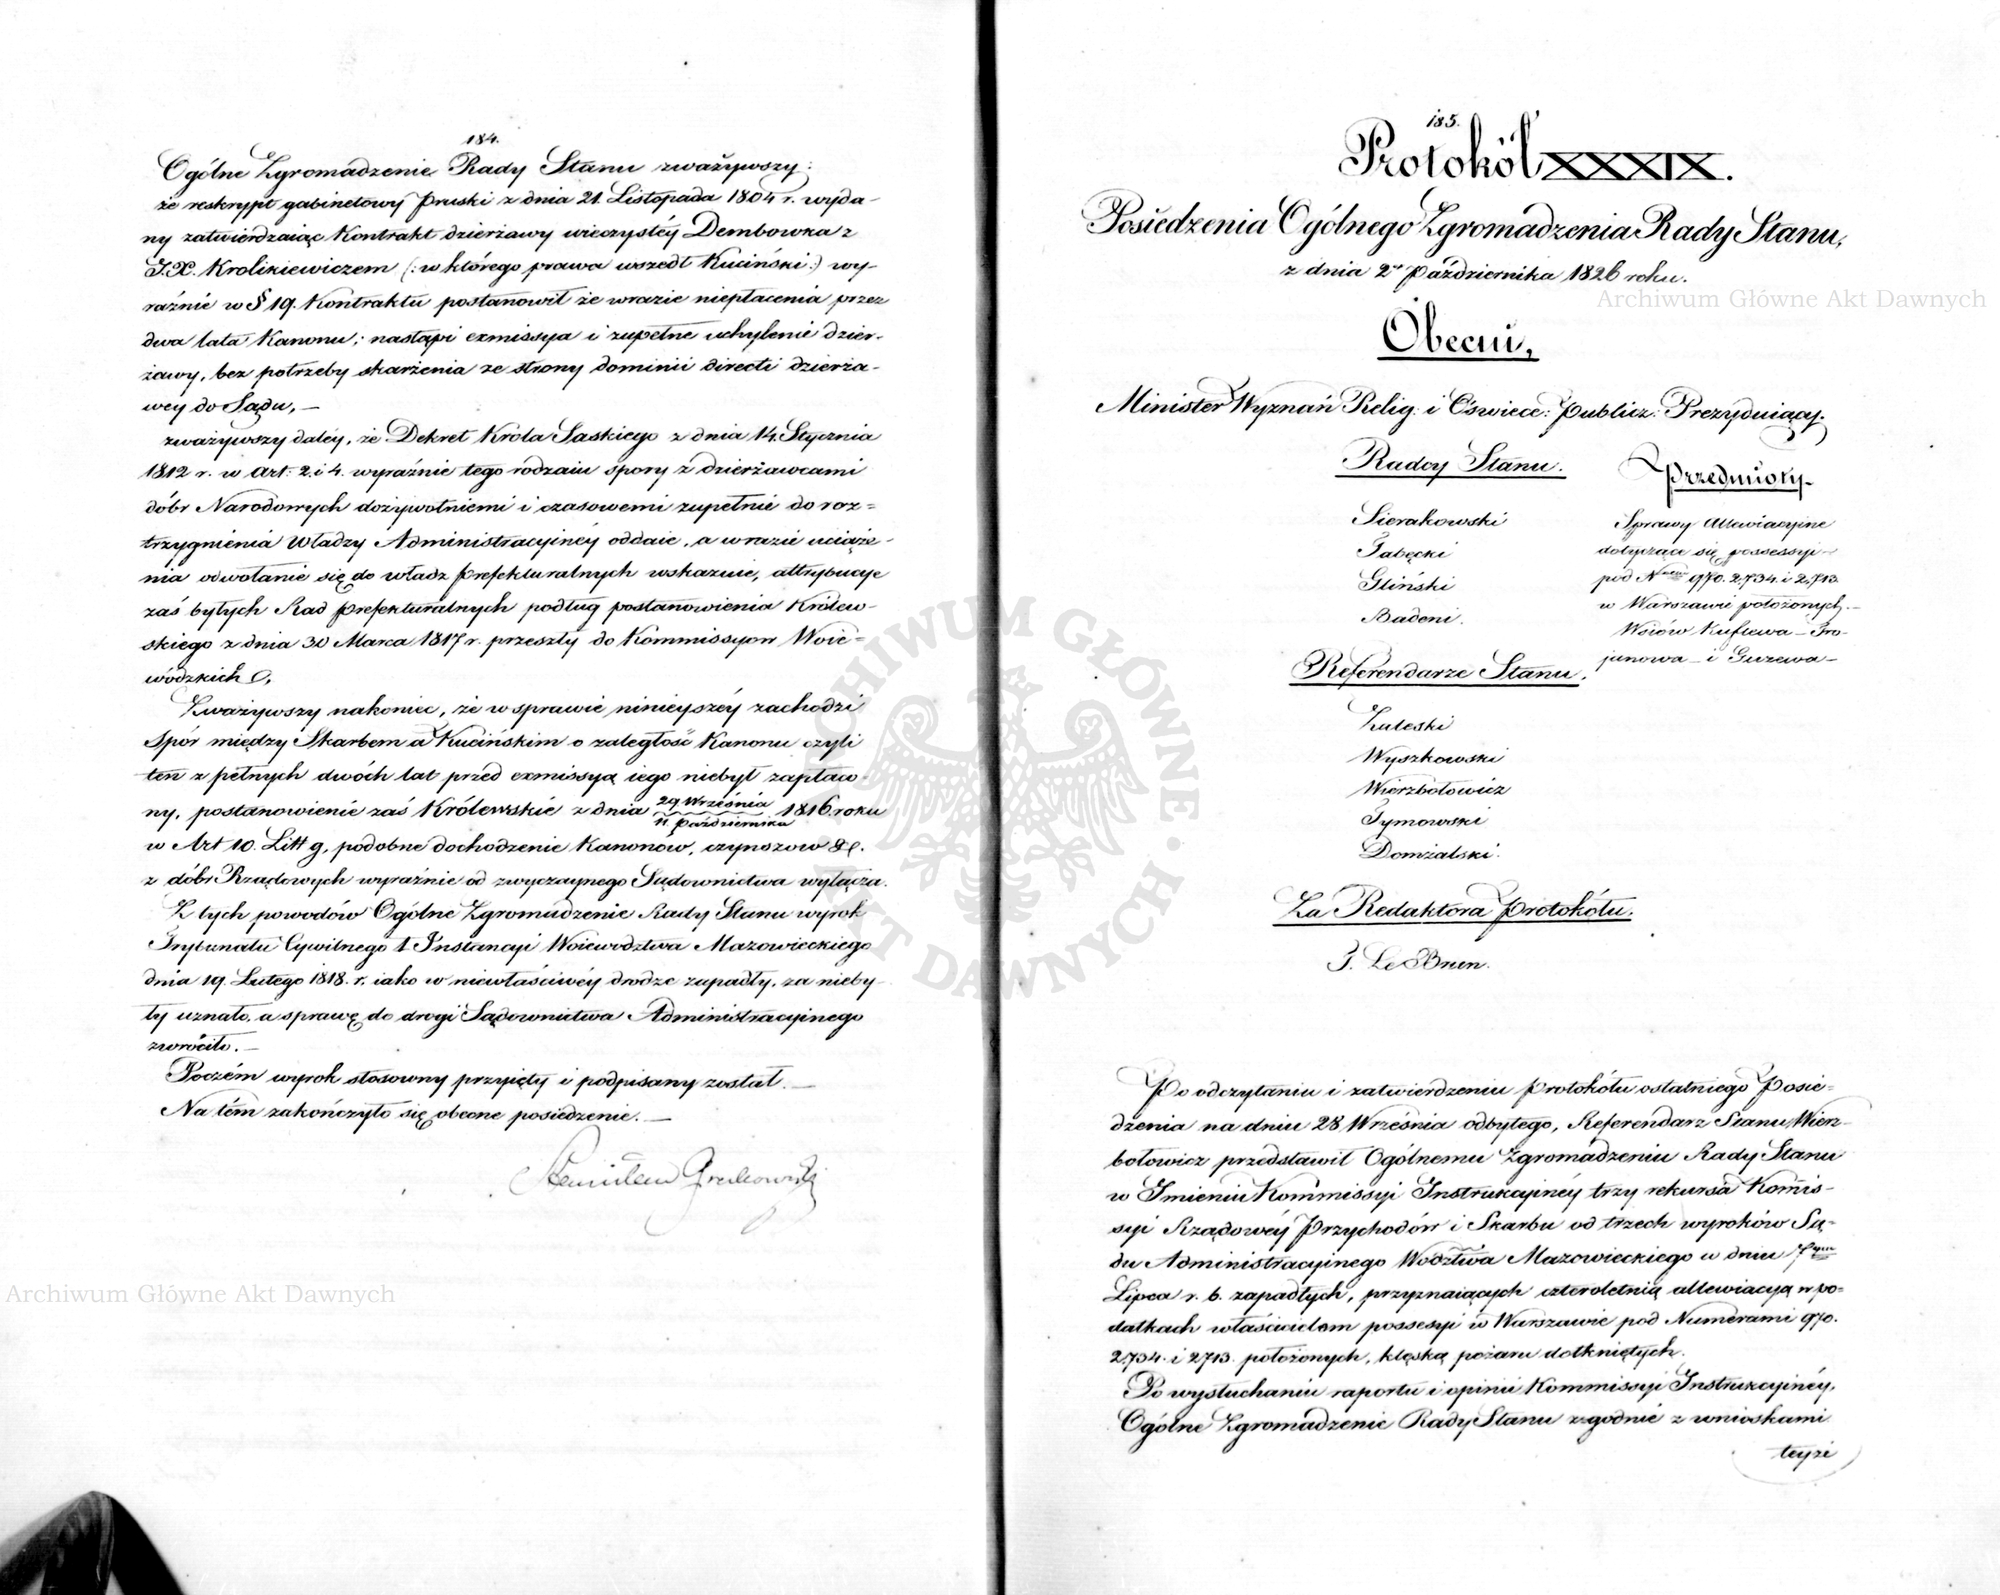 184.
Ogólne Zgromadzenie Rady Stanu zważywszy:
że reskrypt gabinetowy Pruski z dnia 21. Listopada 1804 r. wyda-
ny zatwierdzaiąc Kontrakt dzierżawy wieczystéy Dembowka z
J.X. Krolikiewiczem (: w którego prawa wszedł Kuciński:) wy-
raźnie w § 19. Kontraktu postanowił że wrazie niepłacenia przez
dwa lata Kanonu; nastąpi exmissya i zupełne uchylenie dzier-
żawy, bez potrzeby skarżenia ze strony dominii directi dzierża-
wéy do Sądu, —
zważywszy daléy, że Dekret Króla Saskiego z dnia 14. Stycznia
1812 r. w Art: 2. i 4. wyraźnie tego rodzaiu spory z dzierżawcami
dóbr Narodowych dożywotniemi i czasowemi zupełnie do roz=
trzygnienia Władzy Administracyinéy oddaie, a w razie uciąże-
nia odwołanie się do władz prefekturalnych wskazuie, attrybucye
zaś byłych Rad prefekturalnych podług postanowienia Królew-
skiego z dnia 30 Marca 1817 r. przeszły do Kommissyow Woie=
wódzkich,
Zważywszy nakoniec, że w sprawie ninieyszéy zachodzi
Spór między Skarbem a Kucińskim o zaległość Kanonu czyli
ten z pełnych dwóch lat przed exmissyą iego niebył zapłaco-
ny, postanowienie zaś Królewskie z dnia 29 Września / 11. Października 1816. roku
w Art 10. Litt g, podobne dochodzenie Kanonów, czynszow &c.
z dóbr Rządowych wyraźnie od zwyczaynego Sądownictwa wyłącza.
Z tych powodów Ogólne Zgromadzenie Rady Stanu wyrok
Trybunału Cywilnego 1. Instancyi Woiewództwa Mazowieckiego
dnia 19. Lutego 1818. r. iako w niewłaściwéy drodze zapadły, za nieby-
ły uznało, a sprawę do drogi Sądownictwa Administracyinego
zwróciło. —
Poczém wyrok stosowny przyięty i podpisany został. —
Na tém zakończyło się obecne posiedzenie. —
Stanisław Grabowski
185.
Protokół XXXIX.
Posiedzenia Ogólnego Zgromadzenia Rady Stanu,
z dnia 2go Października 1826 roku.
Obecni,
Minister Wyznań Relig: i Oświece: Publicz: Prezyduiący.
Radcy Stanu.
Sierakowski
Tabęcki
Gliński
Badeni.
Referendarze Stanu.
Zaleski
Wyszkowski
Wierzbołowicz
Tymowski
Domżalski.
Za Redaktora Protokółu.
J. Le Brun.
Przedmioty.
Sprawy Allewiacyine
dotyczące się possessyi—
pod Nrami 970. 2,734. i 2,713.
w Warszawie położonych.—
Wsiów Kuflewa — Tro-
janowa — i Guzewa —
Po odczytaniu i zatwierdzeniu Protokółu ostatniego Posie=
dzenia na dniu 28 Września odbytego, Referendarz Stanu Wierz-
bołowicz przedstawił Ogólnemu Zgromadzeniu Rady Stanu
w Imieniu Kommissyi Instrukcyinéy trzy rekursa Kommis-
syi Rządowéy Przychodów i Skarbu od trzech wyroków Są=
du Administracyinego Wodztwa Mazowieckiego w dniu 7ym
Lipca r. b. zapadłych, przyznaiących czteroletnią allewiacyą w po=
datkach właścicielom possesyi w Warszawie pod Numerami 970.
2,734. i 2713. położonych, klęską pożaru dotkniętych.
Po wysłuchaniu raportu i opinii Kommissyi Instrukcyinéy,
Ogólne Zgromadzenie Rady Stanu zgodnie z wnioskami
teyże
Archiwum Główne Akt Dawnych
Archiwum Główne Akt Dawnych
ARCHIWUM GŁÓWNE AKT DAWNYCH